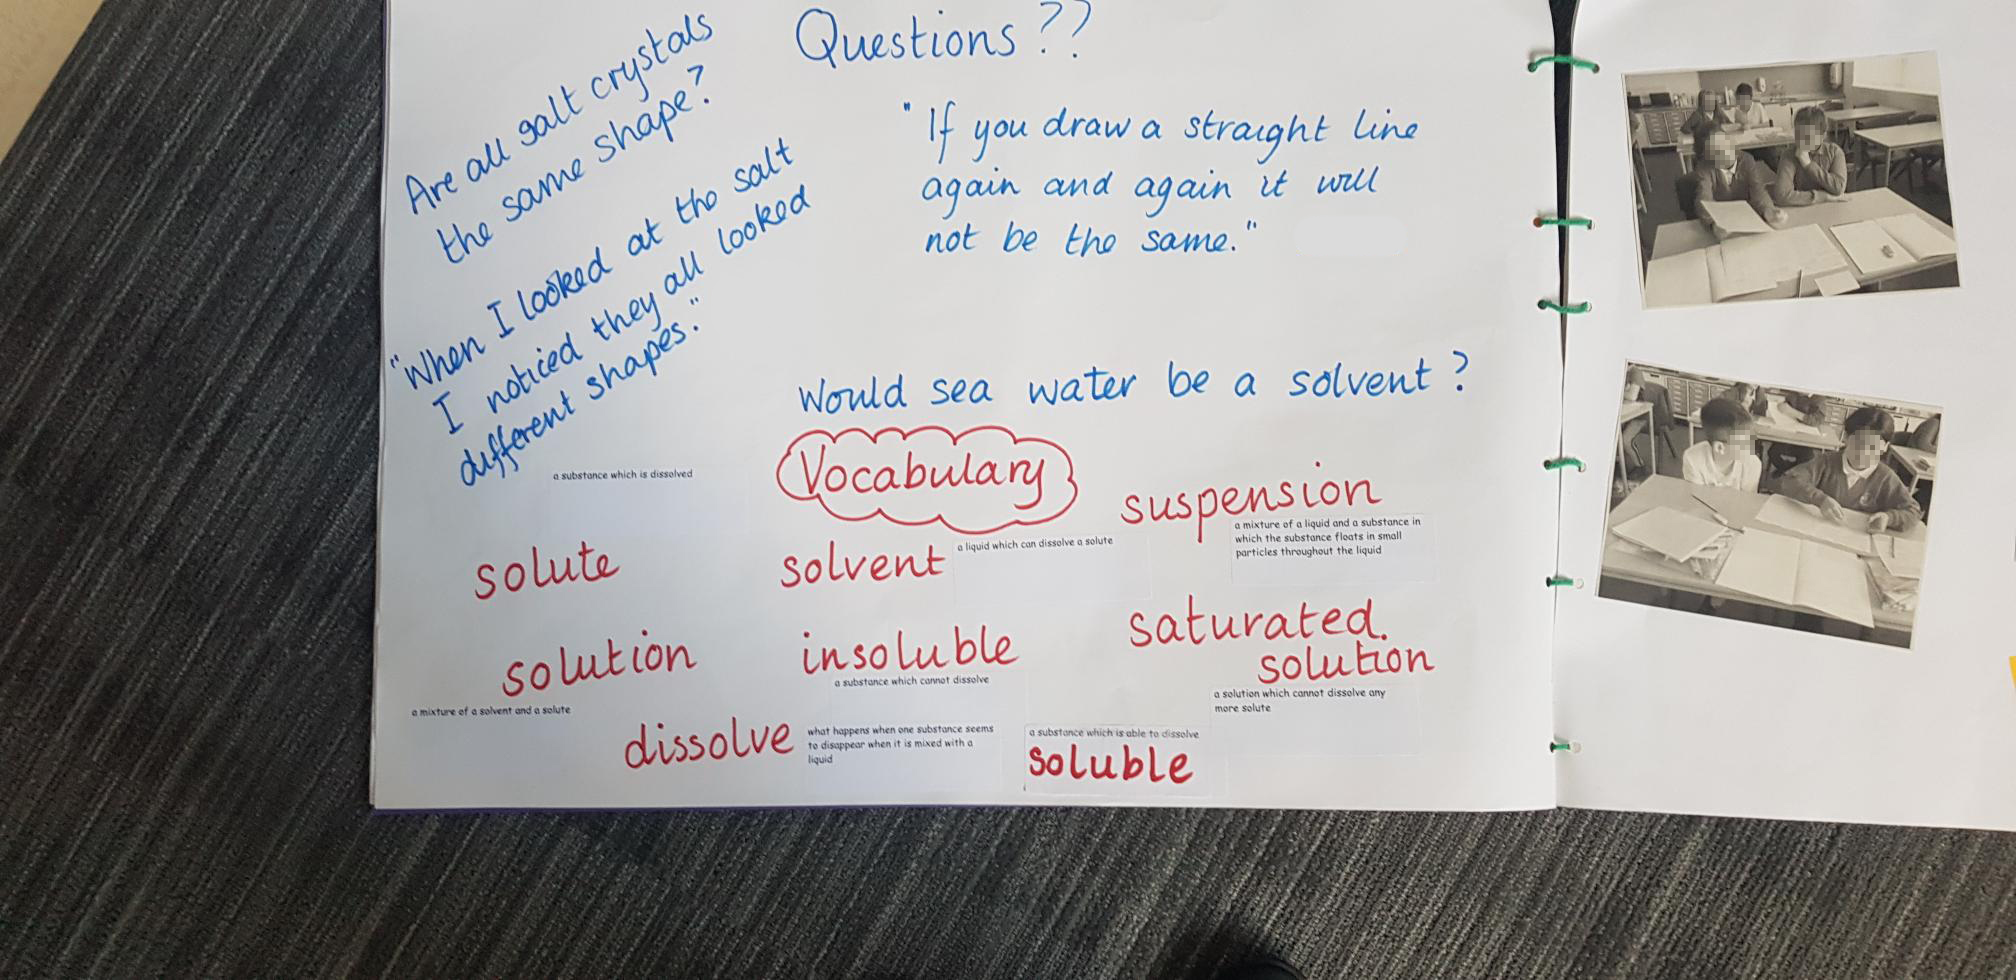 Are all salt crystals
the same shape?
"When I looked at the salt
I noticed they all looked
different shapes."
Questions??
"If you draw a straight line
again and again it will
not be the same."
Would sea water be a solvent?
Vocabulary
a substance which is dissolved
solute
solvent
a liquid which can dissolve a solute
suspension
a mixture of a liquid and a substance in
which the substance floats in small
particles throughout the liquid
solution
a mixture of a solvent and a solute
insoluble
a substance which cannot dissolve
saturated.
solution
a solution which cannot dissolve any
more solute
dissolve
what happens when one substance seems
to disappear when it is mixed with a
liquid
a substance which is able to dissolve
soluble